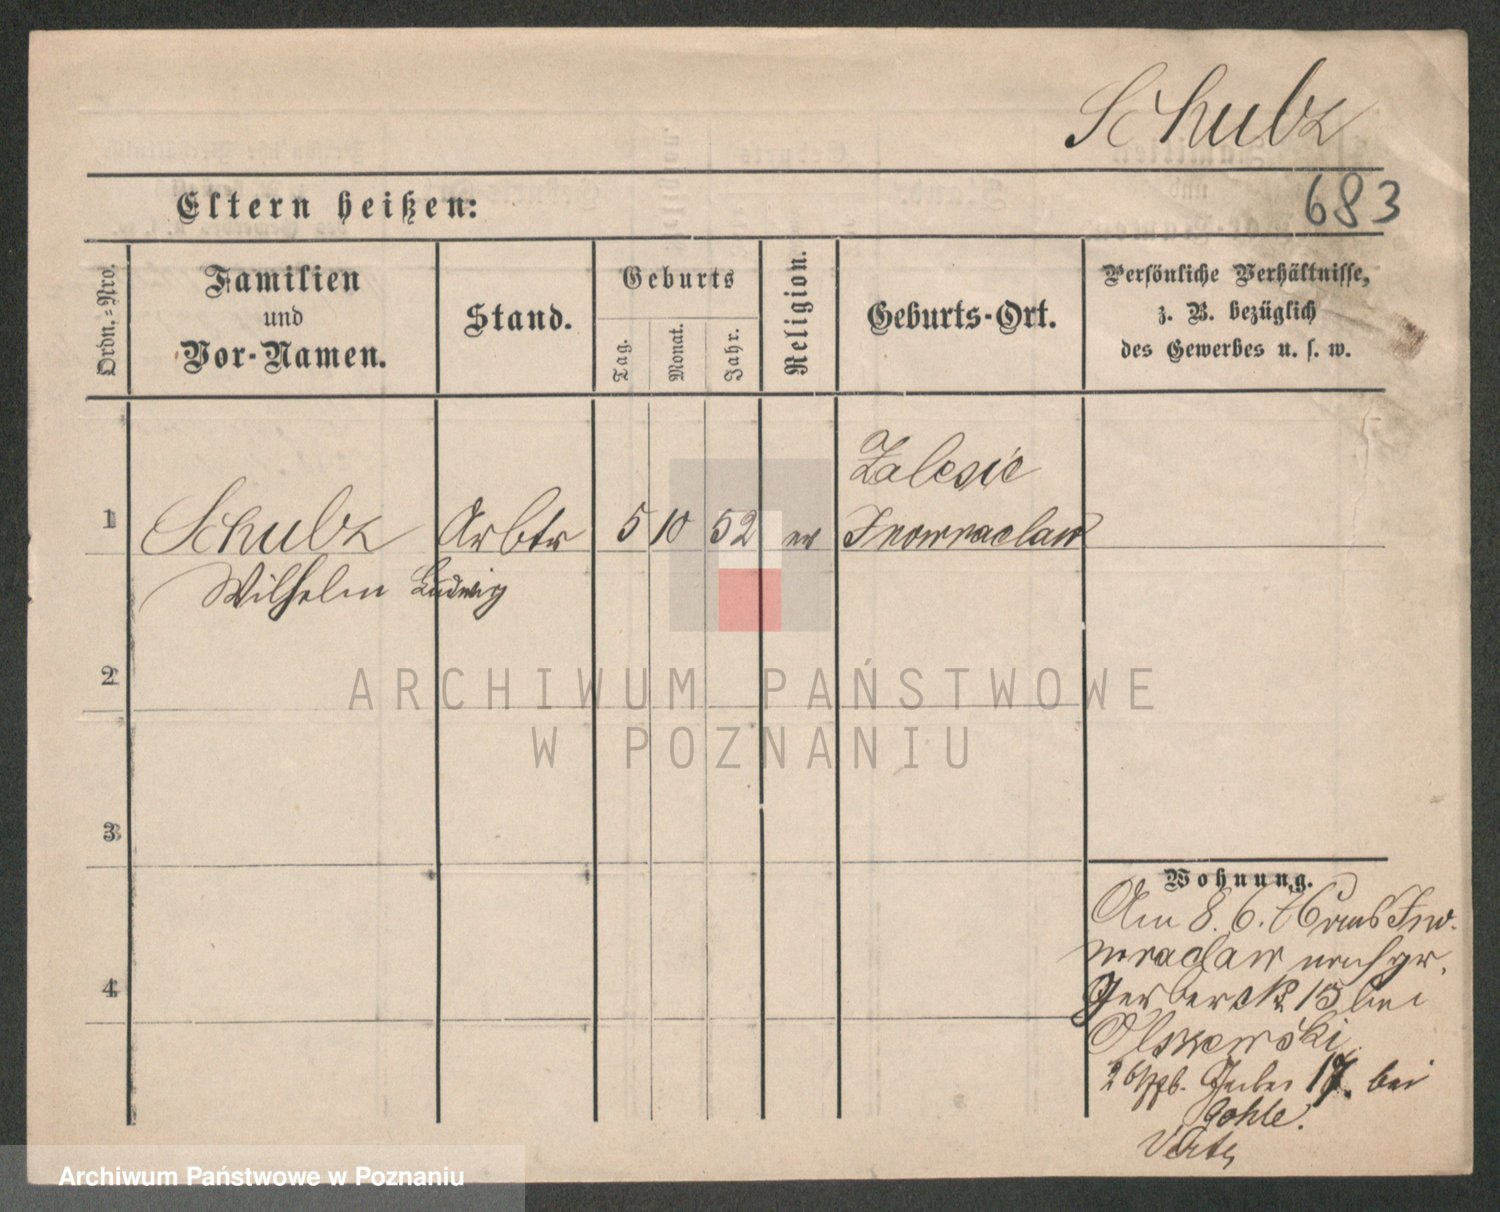 Schulz
683
Eltern heißen:
Ordn.-Nro.
Familien
und
Vor-Namen.
Stand.
Geburts
Tag.
Monat.
Jahr.
Religion.
Geburts-Ort.
Persönliche Verhältnisse,
z. B. bezüglich
des Gewerbes u. s. w.
Zalesie
1 Schulz Arbtr 5 10 52 ev Inowraclaw
Wilhelm Ludwig
2
3
4
Wohnung.
Am 8. 6. 76 aus Ino-
wraclaw nach gr.
Gerberstr 15 bei
Olszewski
Gerber 17. bei
Gohle.
ARCHIWUM PAŃSTWOWE
W POZNANIU
Archiwum Państwowe w Poznaniu